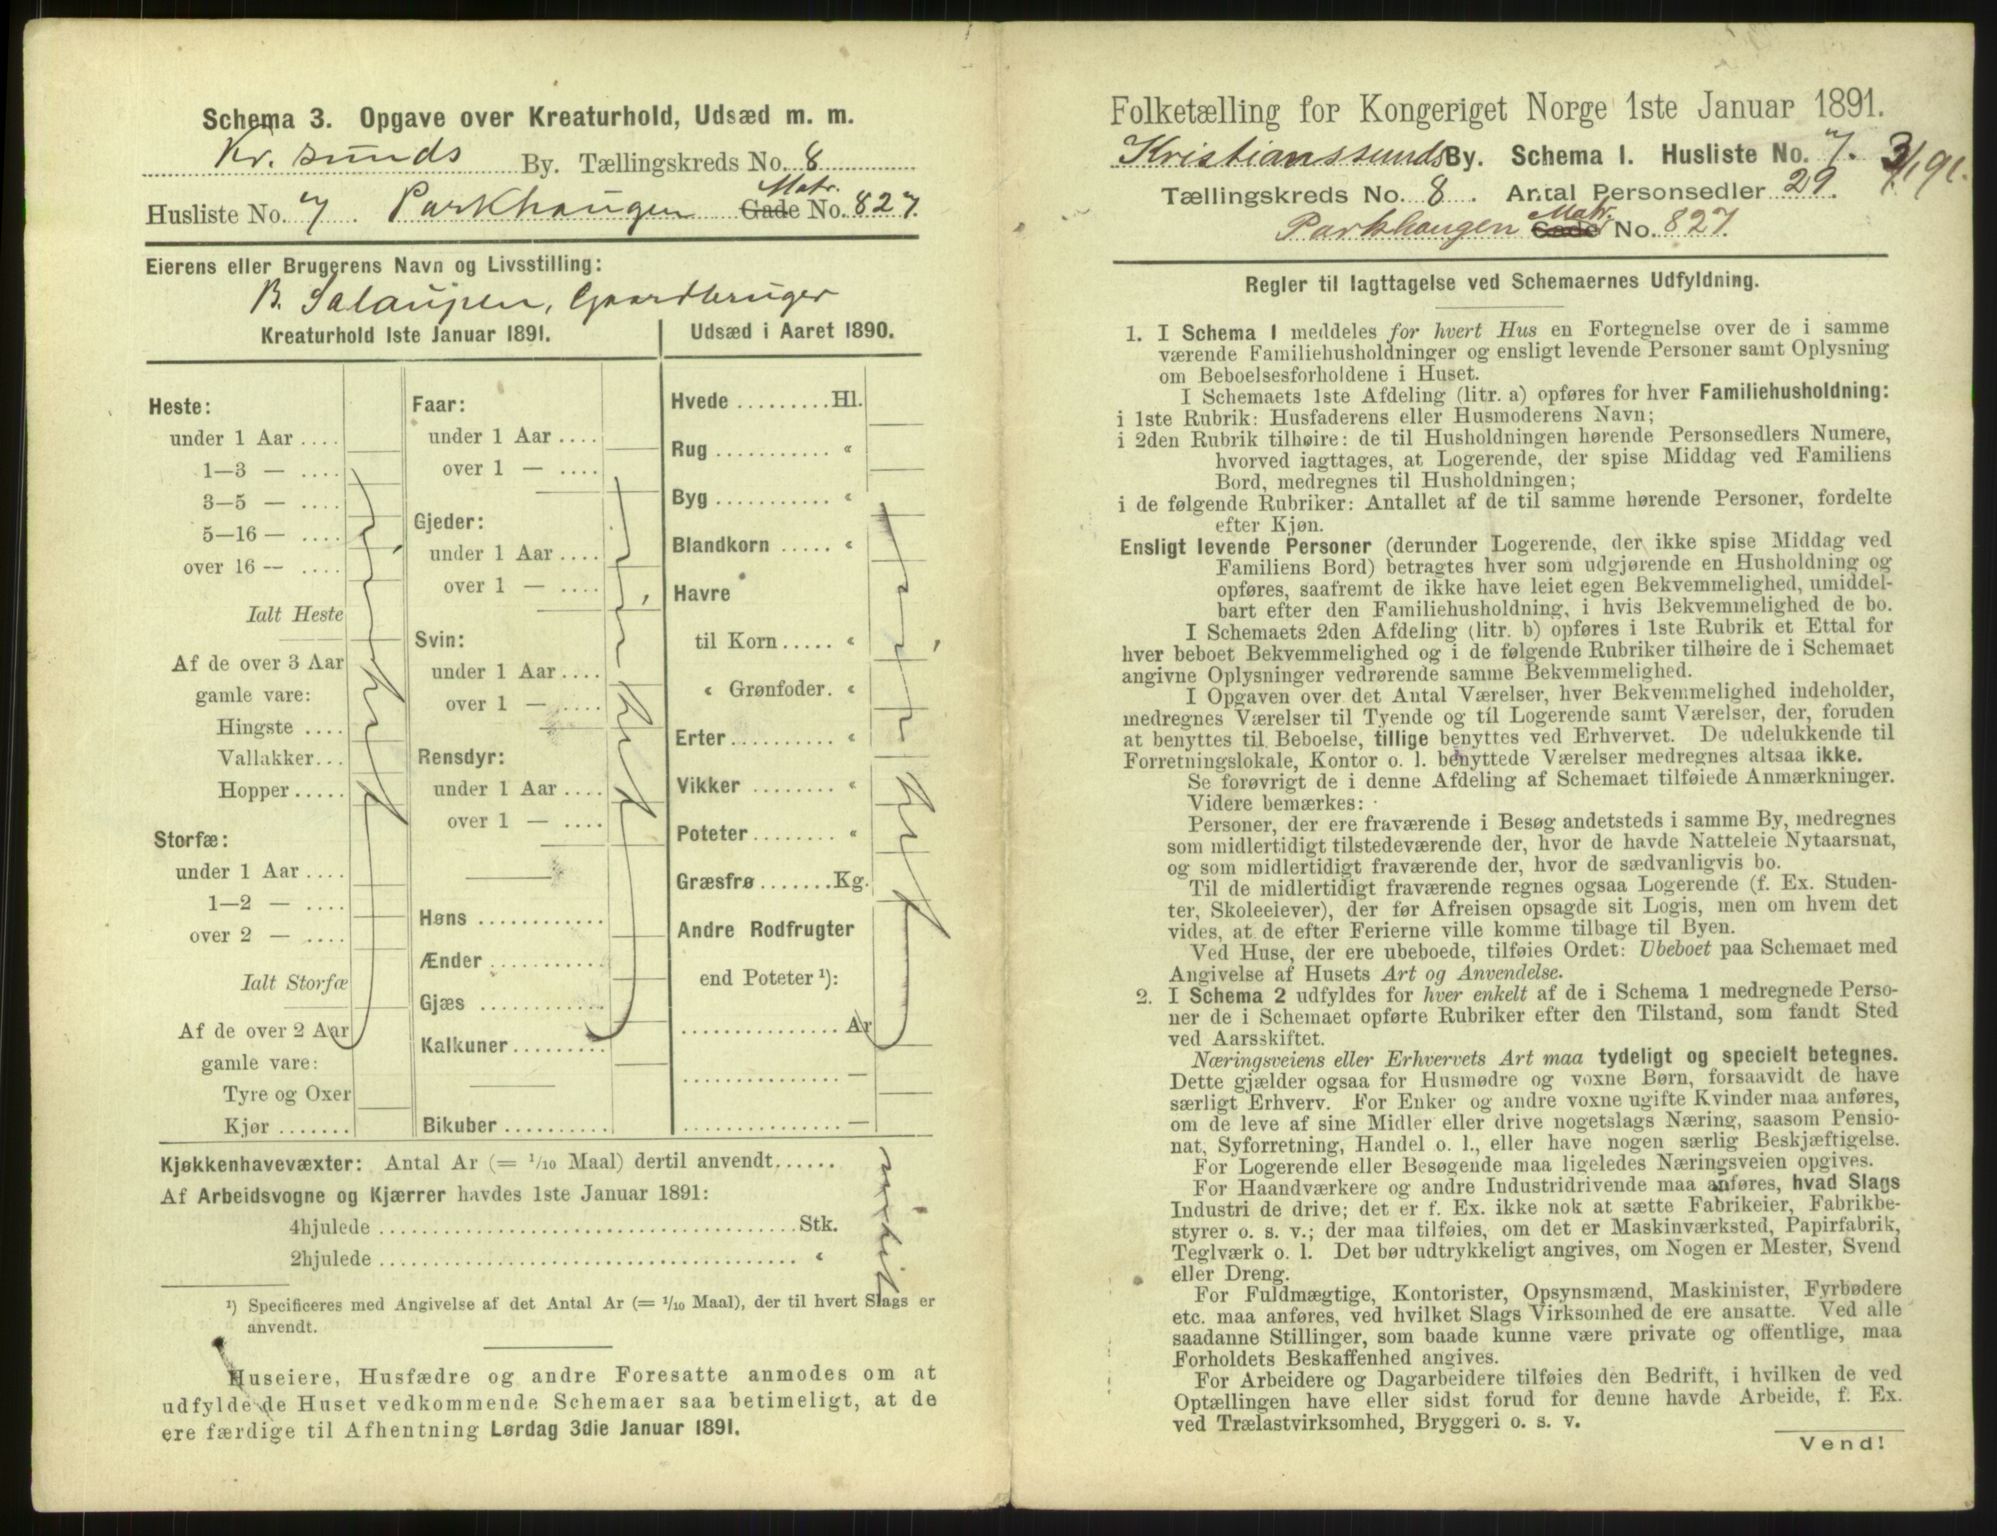 Schema 3. Opgave over Kreaturhold, Udsæd m. m.
Kr. sunds By. Tællingskreds No. 8
Husliste No. 7 Parkhaugen Gade Matr. No. 827.
Eierens eller Brugerens Navn og Livsstilling:
B. Salaupen, Gaardbruger
Kreaturhold 1ste Januar 1891.
Heste:
under 1 Aar ....
1—3 — ....
3—5 — ....
5—16 — ....
over 16 — ....
Ialt Heste
Af de over 3 Aar
gamle vare:
Hingste ....
Vallakker...
Hopper .....
Storfæ:
under 1 Aar ....
1—2 — ....
over 2 — ....
Ialt Storfæ
Af de over 2 Aar
gamle vare:
Tyre og Oxer
Kjør .......
Faar:
under 1 Aar ....
over 1 — ....
Gjeder:
under 1 Aar ....
over 1 — ....
Svin:
under 1 Aar ....
over 1 — ....
Rensdyr:
under 1 Aar ....
over 1 — ....
Høns ............
Ænder ...........
Gjæs ............
Kalkuner .........
Bikuber ..........
Udsæd i Aaret 1890.
Hvede .........Hl.
Rug ........... «
Byg ........... «
Blandkorn ..... «
Havre
til Korn ..... «
« Grønfoder. «
Erter .......... «
Vikker ........ «
Poteter ........ «
Græsfrø .......Kg.
Andre Rodfrugter
end Poteter ¹):
............... Ar
............... —
............... —
Kjøkkenhavevæxter: Antal Ar (= 1/10 Maal) dertil anvendt......
Af Arbeidsvogne og Kjærrer havdes 1ste Januar 1891:
4hjulede ........................................Stk.
2hjulede ........................................ «
¹) Specificeres med Angivelse af det Antal Ar (= 1/10 Maal), der til hvert Slags er
anvendt.
Huseiere, Husfædre og andre Foresatte anmodes om at
udfylde de Huset vedkommende Schemaer saa betimeligt, at de
ere færdige til Afhentning Lørdag 3die Januar 1891.
Folketælling for Kongeriget Norge 1ste Januar 1891.
Kristianssunds By. Schema 1. Husliste No. 7. 3/1 91.
Tællingskreds No. 8. Antal Personsedler 29.
Parkhaugen Gade Matr. No. 827.
Regler til Iagttagelse ved Schemaernes Udfyldning.
1. I Schema 1 meddeles for hvert Hus en Fortegnelse over de i samme
værende Familiehusholdninger og ensligt levende Personer samt Oplysning
om Beboelsesforholdene i Huset.
I Schemaets 1ste Afdeling (litr. a) opføres for hver Familiehusholdning:
i 1ste Rubrik: Husfaderens eller Husmoderens Navn;
i 2den Rubrik tilhøire: de til Husholdningen hørende Personsedlers Numere,
hvorved iagttages, at Logerende, der spise Middag ved Familiens
Bord, medregnes til Husholdningen;
i de følgende Rubriker: Antallet af de til samme hørende Personer, fordelte
efter Kjøn.
Ensligt levende Personer (derunder Logerende, der ikke spise Middag ved
Familiens Bord) betragtes hver som udgjørende en Husholdning og
opføres, saafremt de ikke have leiet egen Bekvemmelighed, umiddel-
bart efter den Familiehusholdning, i hvis Bekvemmelighed de bo.
I Schemaets 2den Afdeling (litr. b) opføres i 1ste Rubrik et Ettal for
hver beboet Bekvemmelighed og i de følgende Rubriker tilhøire de i Schemaet
angivne Oplysninger vedrørende samme Bekvemmelighed.
I Opgaven over det Antal Værelser, hver Bekvemmelighed indeholder,
medregnes Værelser til Tyende og til Logerende samt Værelser, der, foruden
at benyttes til Beboelse, tillige benyttes ved Erhvervet. De udelukkende til
Forretningslokale, Kontor o. l. benyttede Værelser medregnes altsaa ikke.
Se forøvrigt de i denne Afdeling af Schemaet tilføiede Anmærkninger.
Videre bemærkes:
Personer, der ere fraværende i Besøg andetsteds i samme By, medregnes
som midlertidigt tilstedeværende der, hvor de havde Natteleie Nytaarsnat,
og som midlertidigt fraværende der, hvor de sædvanligvis bo.
Til de midlertidigt fraværende regnes ogsaa Logerende (f. Ex. Studen-
ter, Skoleelever), der før Afreisen opsagde sit Logis, men om hvem det
vides, at de efter Ferierne ville komme tilbage til Byen.
Ved Huse, der ere ubeboede, tilføies Ordet: Ubeboet paa Schemaet med
Angivelse af Husets Art og Anvendelse.
2. I Schema 2 udfyldes for hver enkelt af de i Schema 1 medregnede Perso-
ner de i Schemaet opførte Rubriker efter den Tilstand, som fandt Sted
ved Aarsskiftet.
Næringsveiens eller Erhvervets Art maa tydeligt og specielt betegnes.
Dette gjælder ogsaa for Husmødre og voxne Børn, forsaavidt de have
særligt Erhverv. For Enker og andre voxne ugifte Kvinder maa anføres,
om de leve af sine Midler eller drive nogetslags Næring, saasom Pensio-
nat, Syforretning, Handel o. l., eller have nogen særlig Beskjæftigelse.
For Logerende eller Besøgende maa ligeledes Næringsveien opgives.
For Haandværkere og andre Industridrivende maa anføres, hvad Slags
Industri de drive; det er f. Ex. ikke nok at sætte Fabrikeier, Fabrikbe-
styrer o. s. v.; der maa tilføies, om det er Maskinværksted, Papirfabrik,
Teglværk o. l. Det bør udtrykkeligt angives, om Nogen er Mester, Svend
eller Dreng.
For Fuldmægtige, Kontorister, Opsynsmænd, Maskinister, Fyrbødere
etc. maa anføres, ved hvilket Slags Virksomhed de ere ansatte. Ved alle
saadanne Stillinger, som baade kunne være private og offentlige, maa
Forholdets Beskaffenhed angives.
For Arbeidere og Dagarbeidere tilføies den Bedrift, i hvilken de ved
Optællingen have eller sidst forud for denne havde Arbeide, f. Ex.
ved Trælastvirksomhed, Bryggeri o. s. v.
Vend!